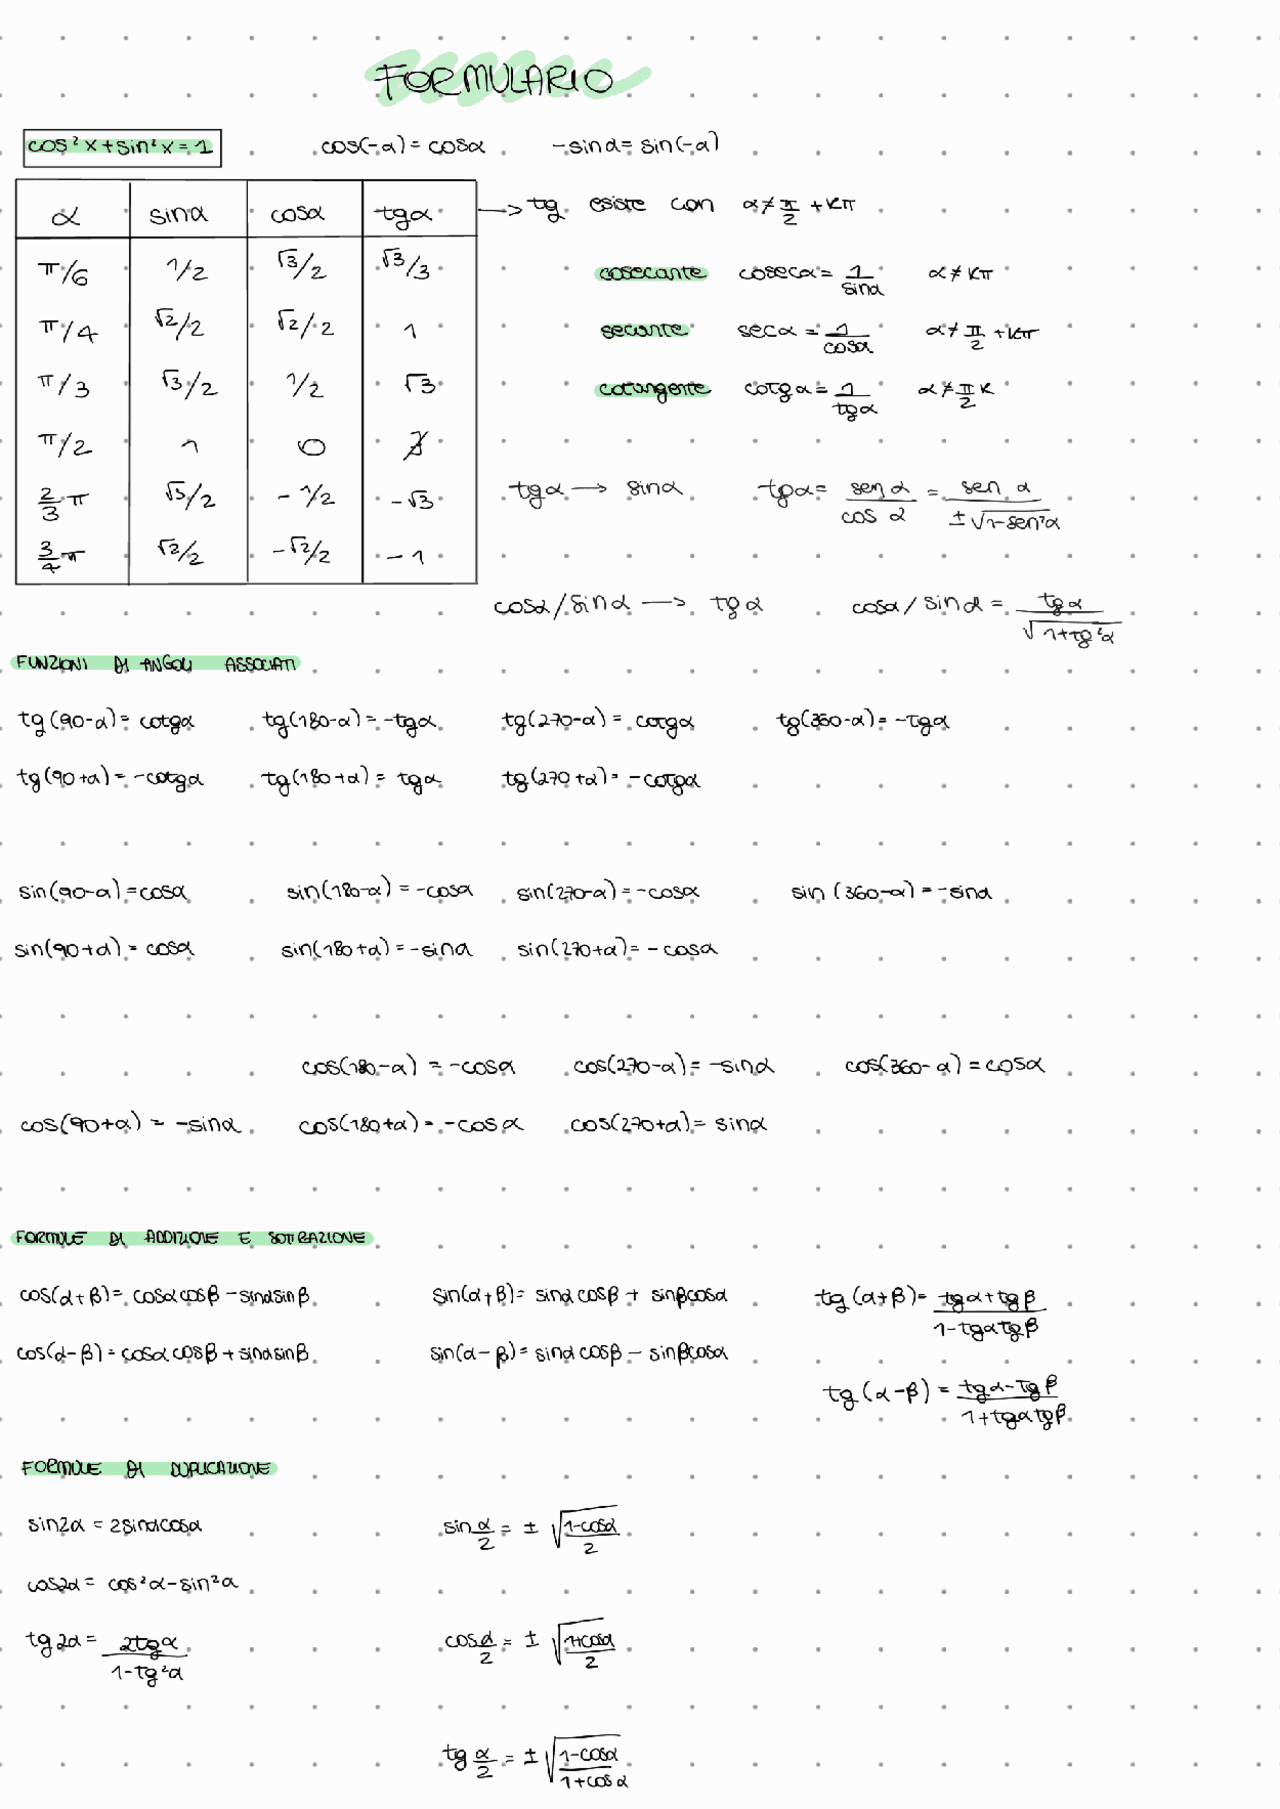 FORMULARIO
cos²x+sin²x=1 cos(-α)=cosα -sinα=sin(-α)
α sinα cosα tgα → tg esiste con α≠π/2+kπ
π/6 1/2 √3/2 √3/3 cosecante cosecα=1/sinα α≠kπ
π/4 √2/2 √2/2 1 secante secα=1/cosα α≠π/2+kπ
π/3 √3/2 1/2 √3 cotangente cotgα=1/tgα α≠π/2 k
π/2 1 0 ∄
2/3 π √3/2 -1/2 -√3 tgα → sinα tgα=sen α/cos α=sen α/±√1-sen²α
3/4 π √2/2 -√2/2 -1
cosα/sinα → tgα cosα/sinα=tgα/√1+tg²α
FUNZIONI DI ANGOLI ASSOCIATI
tg(90-α)=cotgα tg(180-α)=-tgα tg(270-α)=cotgα tg(360-α)=-tgα
tg(90+α)=-cotgα tg(180+α)=tgα tg(270+α)=-cotgα
sin(90-α)=cosα sin(180-α)=-cosα sin(270-α)=-cosα sin(360-α)=-sinα
sin(90+α)=cosα sin(180+α)=-sinα sin(270+α)=-cosα
cos(180-α)=-cosα cos(270-α)=-sinα cos(360-α)=cosα
cos(90+α)=-sinα cos(180+α)=-cosα cos(270+α)=sinα
FORMULE DI ADDIZIONE E SOTTRAZIONE
cos(α+β)=cosαcosβ-sinαsinβ sin(α+β)=sinαcosβ+sinβcosα tg(α+β)=tgα+tgβ/1-tgαtgβ
cos(α-β)=cosαcosβ+sinαsinβ sin(α-β)=sinαcosβ-sinβcosα
tg(α-β)=tgα-tgβ/1+tgαtgβ
FORMULE DI DUPLICAZIONE
sin2α=2sinαcosα sin α/2=±√1-cosα/2
cos2α=cos²α-sin²α
tg2α=2tgα/1-tg²α cos α/2=±√1+cosα/2
tg α/2=±√1-cosα/1+cosα